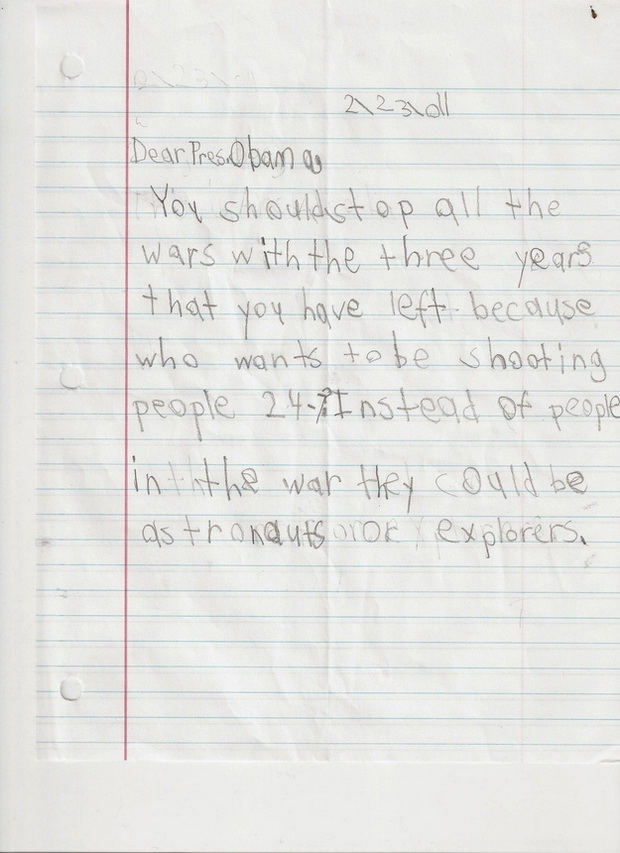 2\23\011
Dear Pres. Obama
You should stop all the
wars with the three years
that you have left because
who wants to be shooting
people 24-7 Instead of people
in the war they could be
astronauts or explorers.